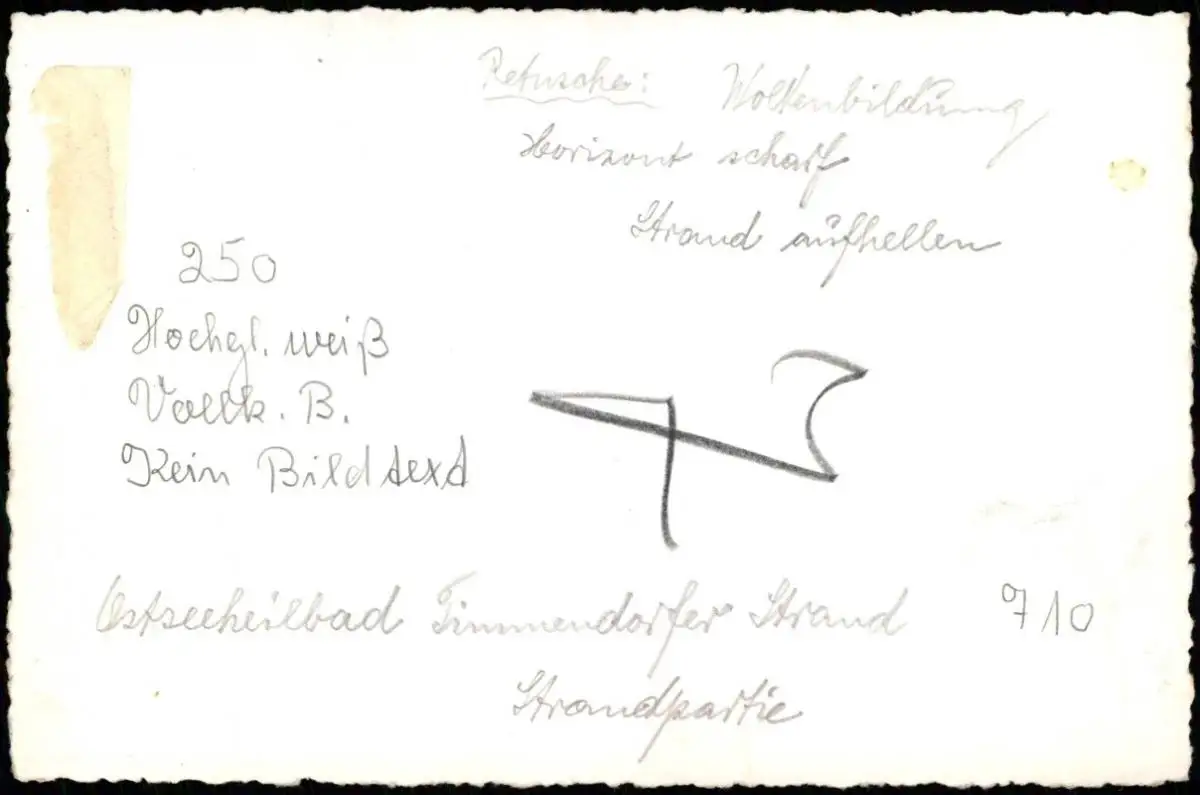 Retusche: Wolkenbildung
Horizont scharf
Strand aufhellen
250
Hochgl. weiß
Vollk. B.
Kein Bildtext
Ostseeheilbad Timmendorfer Strand 710
Strandpartie